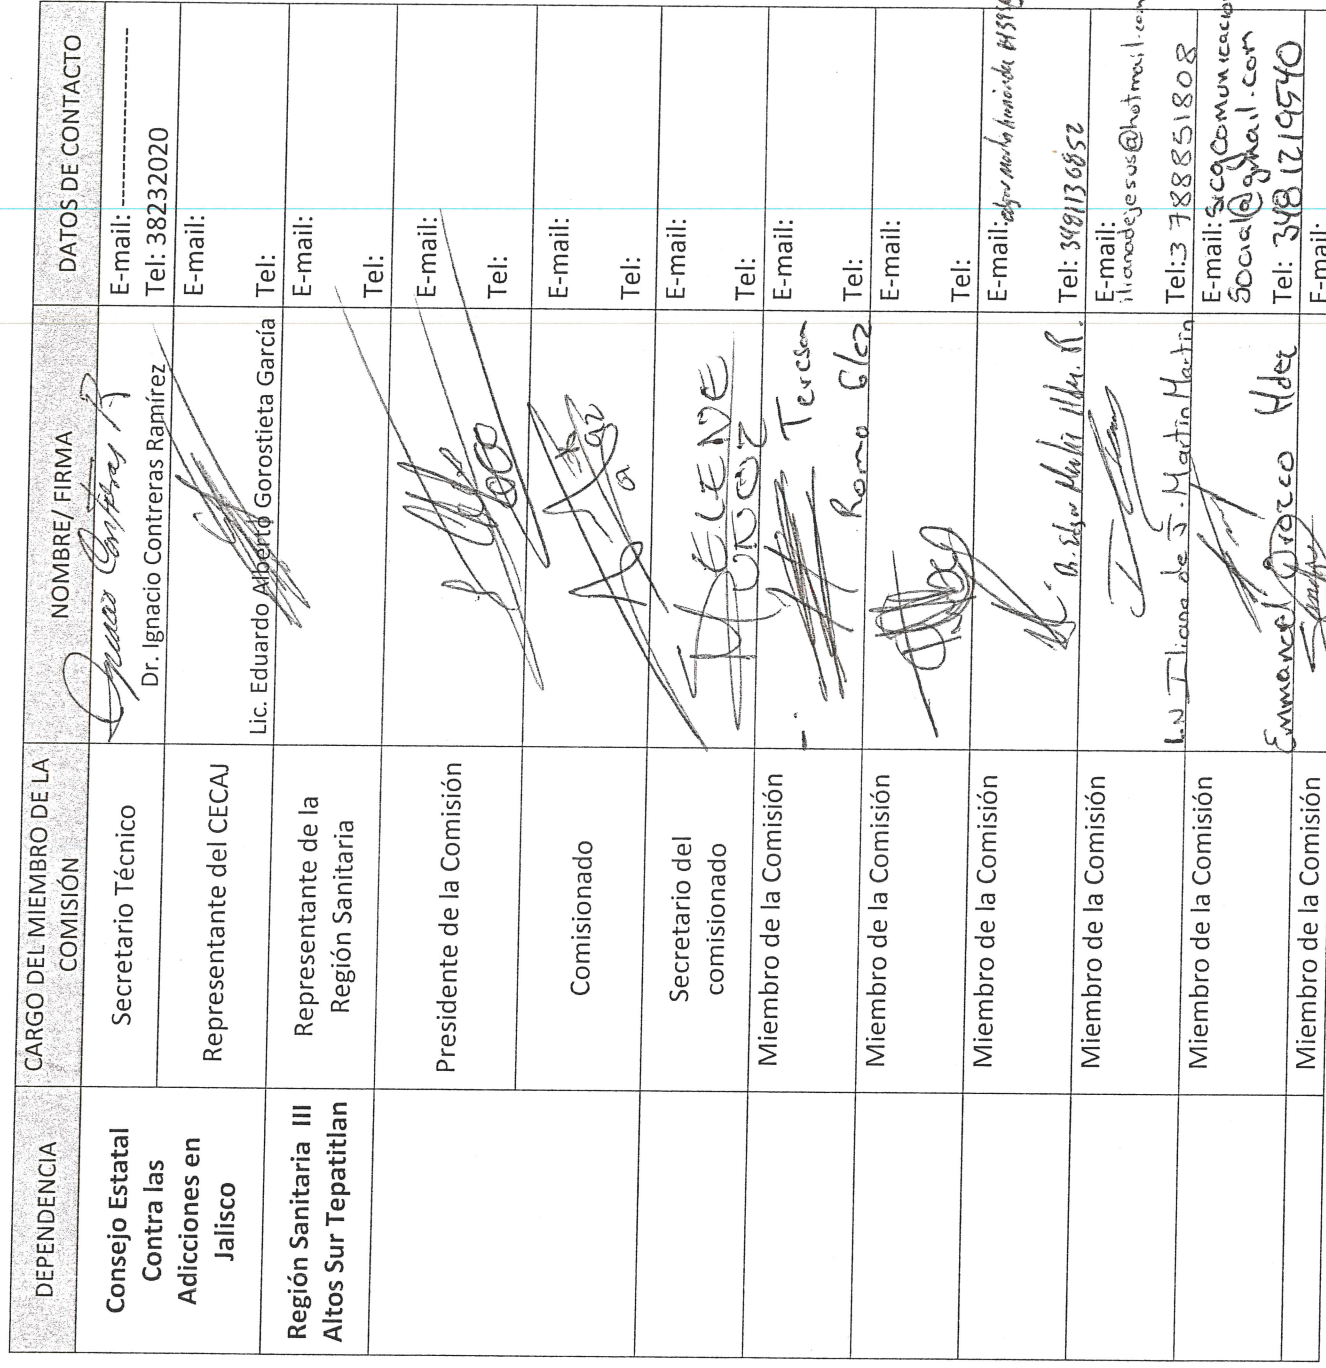 DEPENDENCIA
CARGO DEL MIEMBRO DE LA
COMISIÓN
NOMBRE/ FIRMA
DATOS DE CONTACTO
Consejo Estatal
Contra las
Adicciones en
Jalisco
Secretario Técnico
Dr. Ignacio Contreras Ramírez
E-mail: -------------------
Tel: 38232020
Representante del CECAJ
Lic. Eduardo Alberto Gorostieta García
E-mail:
Tel:
Región Sanitaria III
Altos Sur Tepatitlan
Representante de la
Región Sanitaria
E-mail:
Tel:
Presidente de la Comisión
E-mail:
Tel:
Comisionado
E-mail:
Tel:
Secretario del
comisionado
E-mail:
Tel:
Miembro de la Comisión
Teresa
Romo Glez
E-mail:
Tel:
Miembro de la Comisión
E-mail:
Tel:
Miembro de la Comisión
Dr. Edgar
E-mail:
Tel: 3481136852
Miembro de la Comisión
L.N Iliana de J. Martin Martin
E-mail:
ilianadejesus@hotmail.com
Tel: 3788851808
Miembro de la Comisión
Emmanuel Orozco Hdez
E-mail: sicgcomunicacion
social@gmail.com
Tel: 3481219540
Miembro de la Comisión
E-mail: